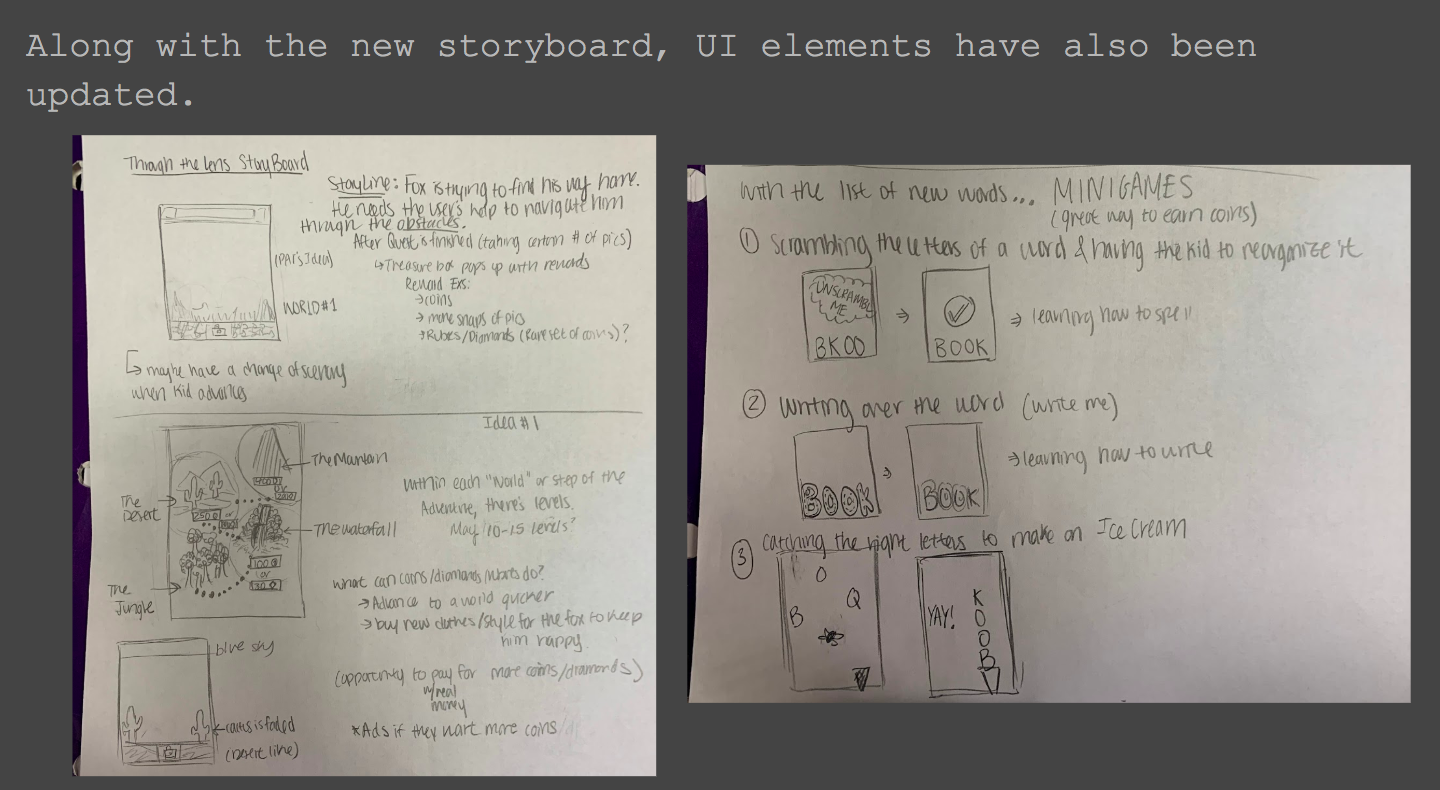 Along with the new storyboard, UI elements have also been
updated.
Through the Lens StoryBoard
StoryLine: Fox is trying to find his way home.
He needs the user's help to navigate him
through the obstacles.
After Quest is finished (taking certain # of pics)
↳Treasure box pops up with rewards
Reward Exs:
→coins
→ more snaps of pics
→Rubies/Diamonds (Rare set of coins)?
WORLD#1
↳ maybe have a change of scenery
when kid advances
Idea #1
The Mountain
The Desert
The waterfall
The Jungle
250
100
or
30
within each "World" or step of the
Adventure, there's levels.
May 10-15 levels?
What can coins/diamonds do?
→ Advance to a world quicker
→ buy new clothes/style for the fox to keep
him happy.
(opportunity to pay for more coins/diamonds)
w/real
money
*Ads if they want more coins
blue sky
cactus is faded
(Desert like)
with the list of new words... MINIGAMES
(great way to earn coins)
① Scrambling the letters of a word & having the kid to reorganize it
UNSCRAMBLE
ME
BKOO
→
BOOK
⇒ learning how to spell
② Writing over the word (write me)
BOOK
→
BOOK
→learning how to write
③ Catching the right letters to make an Ice Cream
O
Q
B
YAY!
K
O
O
B